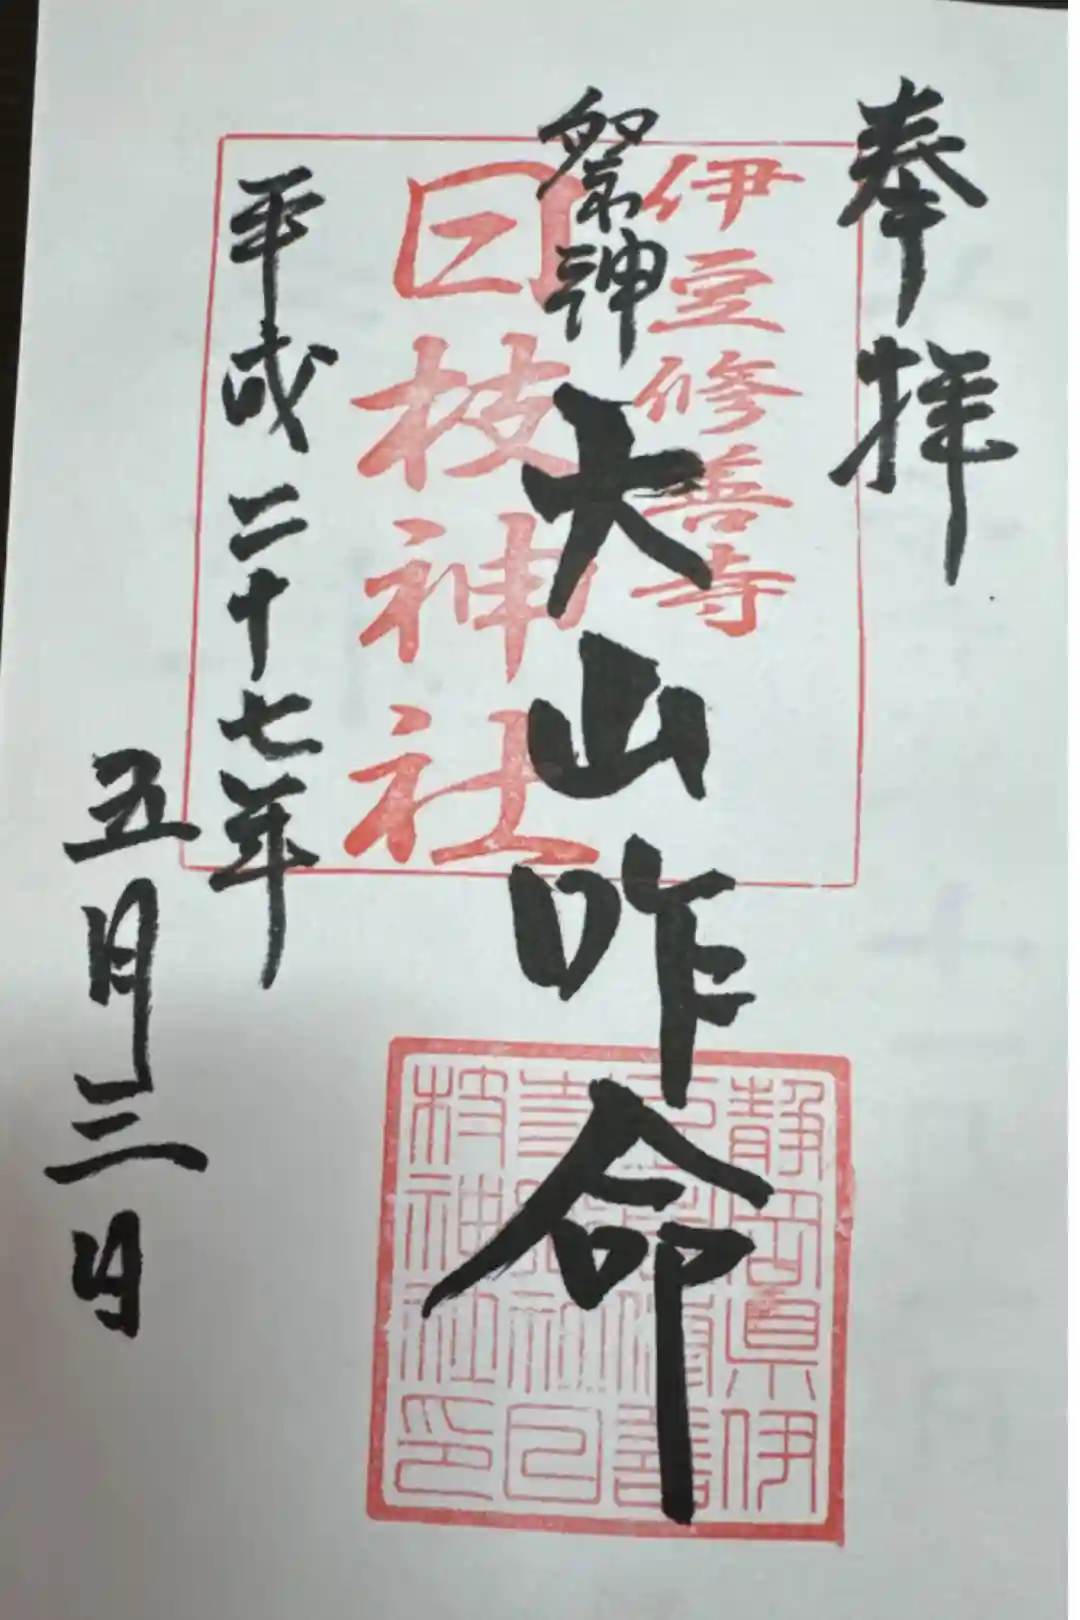 奉拝
伊豆修善寺
祭神 大山咋命
日枝神社
平成二十七年
五月三日
静岡県伊
枝神社印